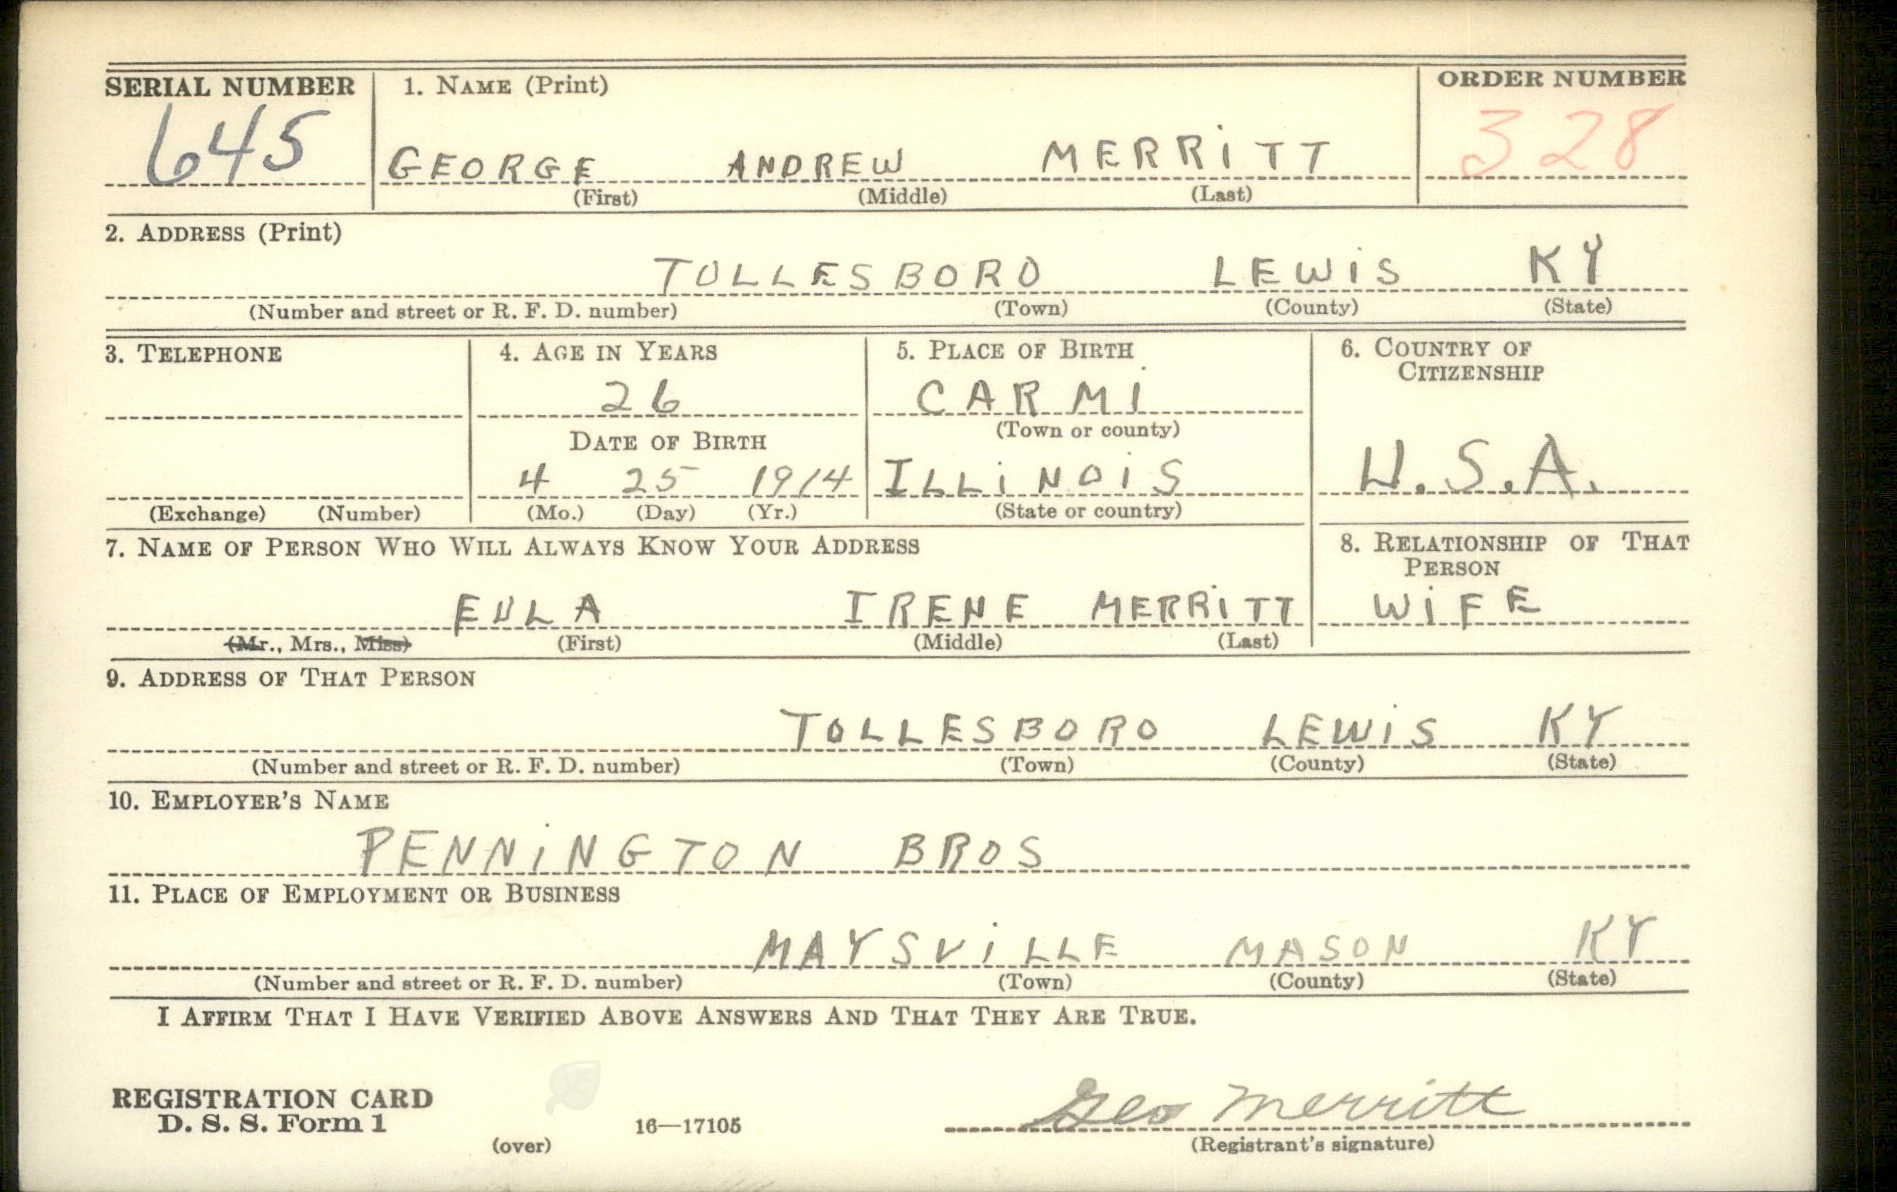 SERIAL NUMBER 1. NAME (Print) ORDER NUMBER
645 GEORGE ANDREW MERRITT 328
(First) (Middle) (Last)
2. ADDRESS (Print)
TOLLESBORO LEWIS KY
(Number and street or R. F. D. number) (Town) (County) (State)
3. TELEPHONE 4. AGE IN YEARS 5. PLACE OF BIRTH 6. COUNTRY OF
CITIZENSHIP
26 CARMI
(Town or county)
DATE OF BIRTH
4 25 1914 ILLINOIS U.S.A.
(Exchange) (Number) (Mo.) (Day) (Yr.) (State or country)
7. NAME OF PERSON WHO WILL ALWAYS KNOW YOUR ADDRESS 8. RELATIONSHIP OF THAT
PERSON
EULA IRENE MERRITT WIFE
(Mr., Mrs., Miss) (First) (Middle) (Last)
9. ADDRESS OF THAT PERSON
TOLLESBORO LEWIS KY
(Number and street or R. F. D. number) (Town) (County) (State)
10. EMPLOYER'S NAME
PENNINGTON BROS
11. PLACE OF EMPLOYMENT OR BUSINESS
MAYSVILLE MASON KY
(Number and street or R. F. D. number) (Town) (County) (State)
I AFFIRM THAT I HAVE VERIFIED ABOVE ANSWERS AND THAT THEY ARE TRUE.
REGISTRATION CARD Geo Merritt
D. S. S. Form 1 (over) 16—17105 (Registrant's signature)